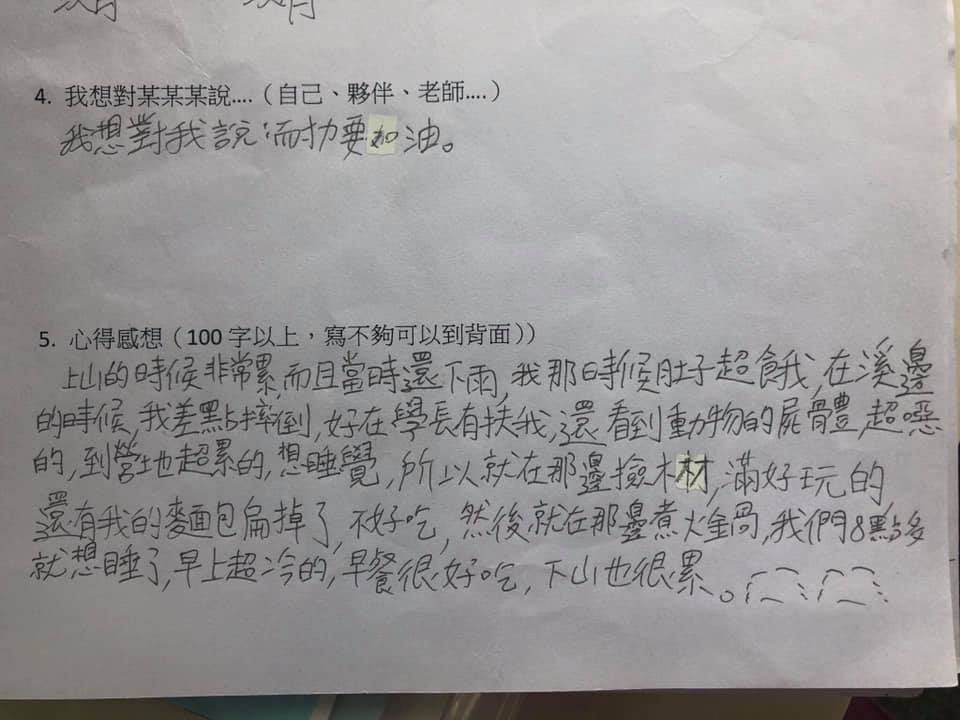 4. 我想對某某某說....（自己、夥伴、老師....）
我想對我說：耐力要加油。
5. 心得感想（100 字以上，寫不夠可以到背面））
上山的時候非常累,而且當時還下雨,我那時候肚子超餓我,在溪邊
的時候,我差點摔倒,好在學長有扶我,還看到動物的屍體,超噁
的,到營地超累的,想睡覺,所以就在那邊撿木材,滿好玩的
還有我的麵包扁掉了,不好吃,然後就在那邊煮火鍋,我們8點多
就想睡了,早上超冷的,早餐很好吃,下山也很累。